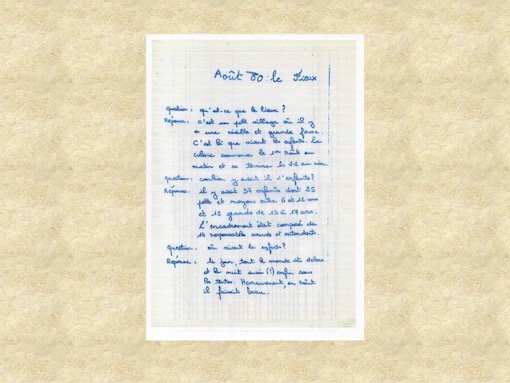 Août 80 : le
Question : qu'est-ce que le ?
Réponse : C'est un petit village où il y
a une vieille et grande ferme.
C'est là que vivent les enfants. La
colonie commence le 1er Août au
matin et se termine le 31 au soir.
Question : combien y avait il d'enfants?
Réponse : il y avait 37 enfants dont 25
petits et moyens entre 6 et 12 ans
et 12 grands de 13 à 17 ans.
L'encadrement était composé de
14 responsables sourds et entendants.
Question : où vivent les enfants?
Réponse : le jour, tout le monde est dehors
et la nuit aussi (!) enfin sous
les tentes. Heureusement, en Août
il faisait beau.